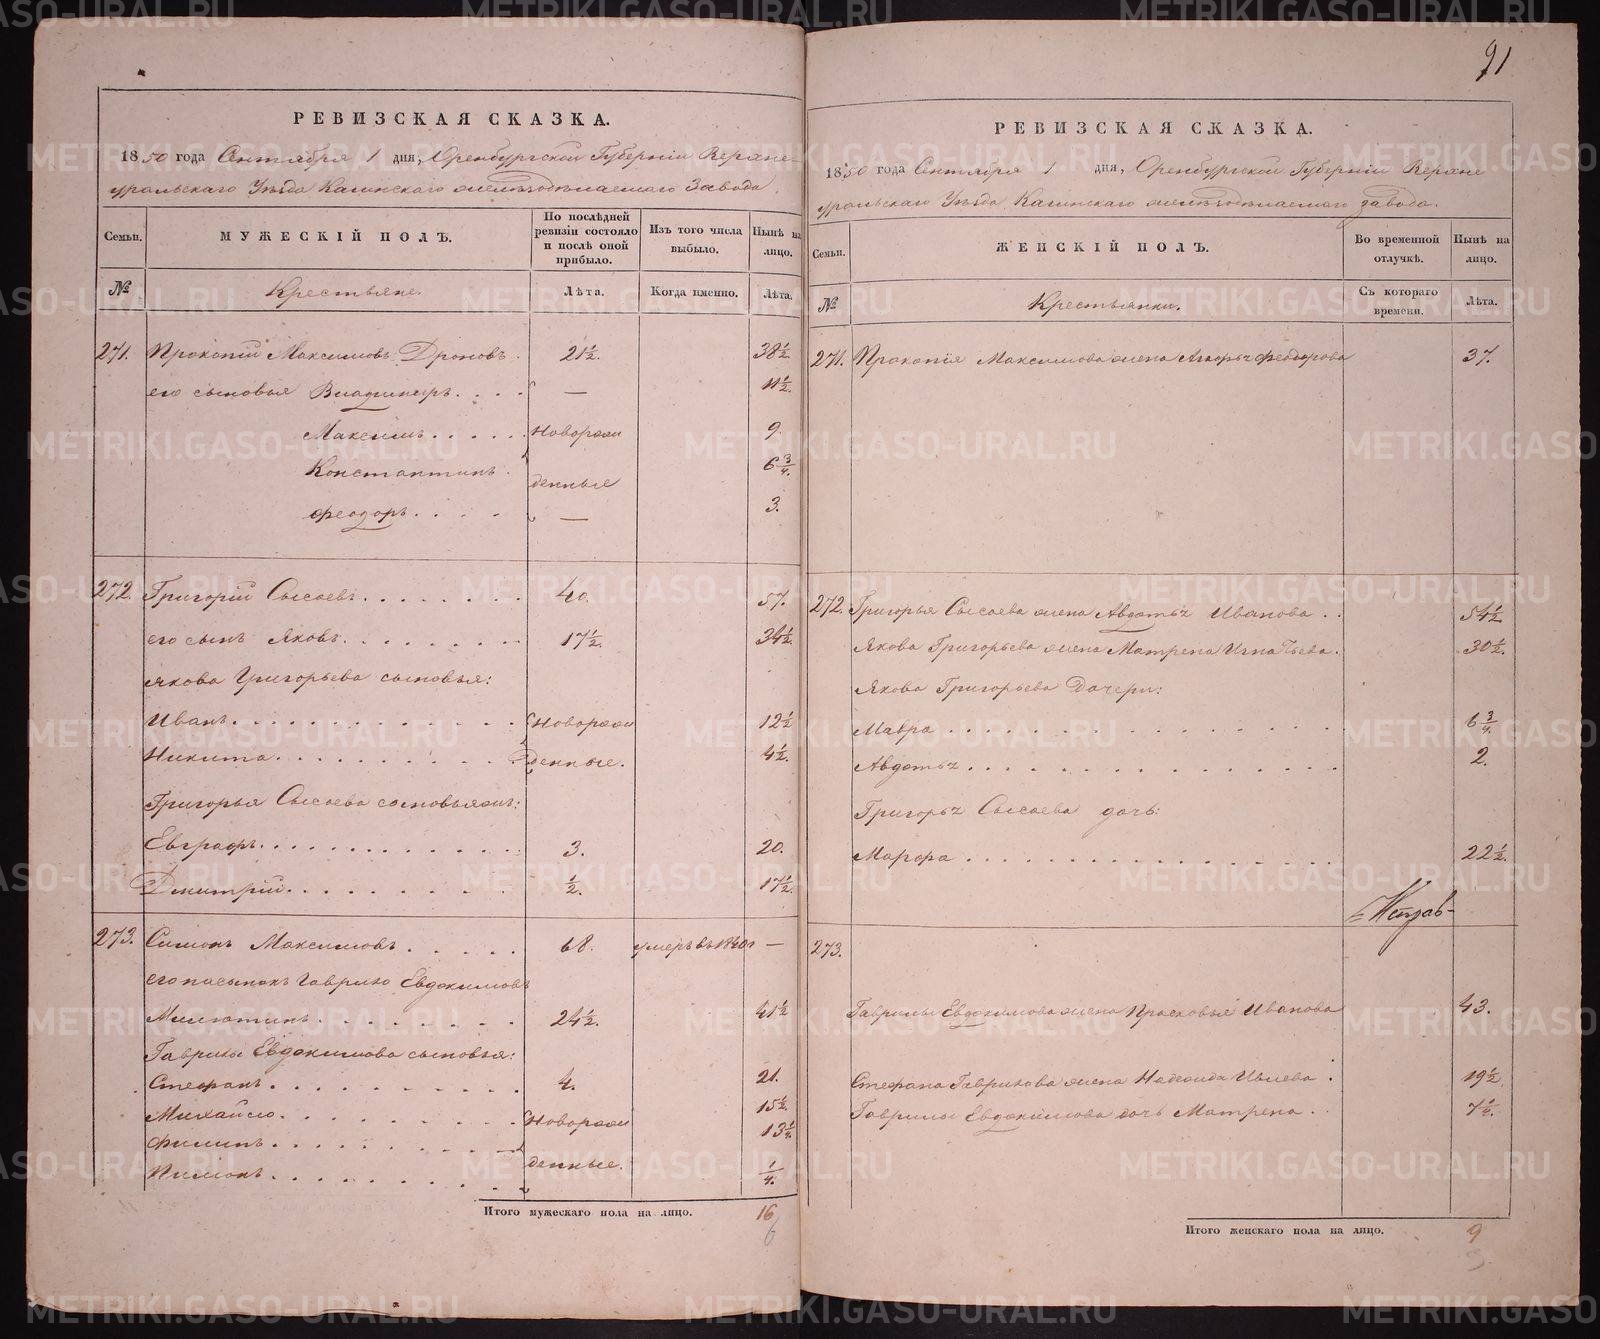 91
РЕВИЗСКАЯ СКАЗКА.
1850 года Сентября 1 дня, Оренбургской Губерніи Верхне-
уральскаго Уѣзда Кагинскаго желѣзодѣлаемаго Завода.
Семьи. МУЖЕСКІЙ ПОЛЪ. По послѣдней ревизіи состояло и послѣ оной прибыло. Изъ того числа выбыло. Нынѣ на лицо.
№ Крестьяне. Лѣта. Когда именно. Лѣта.
271. Прокопій Максимовъ Дроновъ. 21½. 38½.
его сыновья Владимиръ. — 11½.
Максимъ. Новорож 9.
Константинъ. денные 6¾.
Феодоръ. — 3.
272. Григорій Сысоевъ. 40. 57.
его сынъ Яковъ. 17½. 34½.
Якова Григорьева сыновья:
Иванъ. Новорож 12½
Никита. денные. 4½.
Григорья Сысоева сыновья:
Евграфъ. 3. 20.
Дмитрій. ½. 17½.
273. Симонъ Максимовъ. 68. умеръ въ 1840 г —
его пасынокъ Гаврило Евдокимовъ
Милютинъ. 24½. 41½
Гаврилы Евдокимова сыновья:
Стефанъ. 4. 21.
Михайло. Новорож 15½.
Филипъ. 13¼.
Пимонъ. денные. ¼.
Итого мужескаго пола на лицо. 16
6
РЕВИЗСКАЯ СКАЗКА.
1850 года Сентября 1 дня, Оренбургской Губерніи Верхне
уральскаго Уѣзда Кагинскаго желѣзодѣлаемаго завода.
Семьи. ЖЕНСКІЙ ПОЛЪ. Во временной отлучкѣ. Нынѣ на лицо.
№ Крестьянки. Съ котораго времени. Лѣта.
271. Прокопія Максимова жена Феодорова 37.
272. Григорья Сысоева жена Авдотья Иванова. 54½
Якова Григорьева жена Матрена Игнатьева. 30½.
Якова Григорьева Дочери:
Мавра 6¾.
Авдотья. 2.
Григорья Сысоева дочь:
Марфа. 22½.
273.
Гаврилы Евдокимова жена Прасковья Иванова 43.
Стефана Гаврилова жена Надежда 19½.
Гаврилы Евдокимова дочь Матрена. 7½.
Итого женскаго пола на лицо. 9
3
METRIKI.GASO-URAL.RU